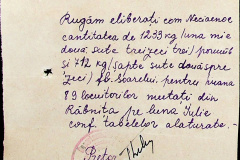 Rugăm eliberați com. Neciaenoe
cantitatea de 1233 kg (una mie
două sute treizeci trei) porumb
și 712 kg (sapte sute douăspre
zeci) fl. soarelui pentru hrana
89 locuitorilor mutați din
Râbnița pe luna Iulie
conf. tabelelor alaturate.
Pretor